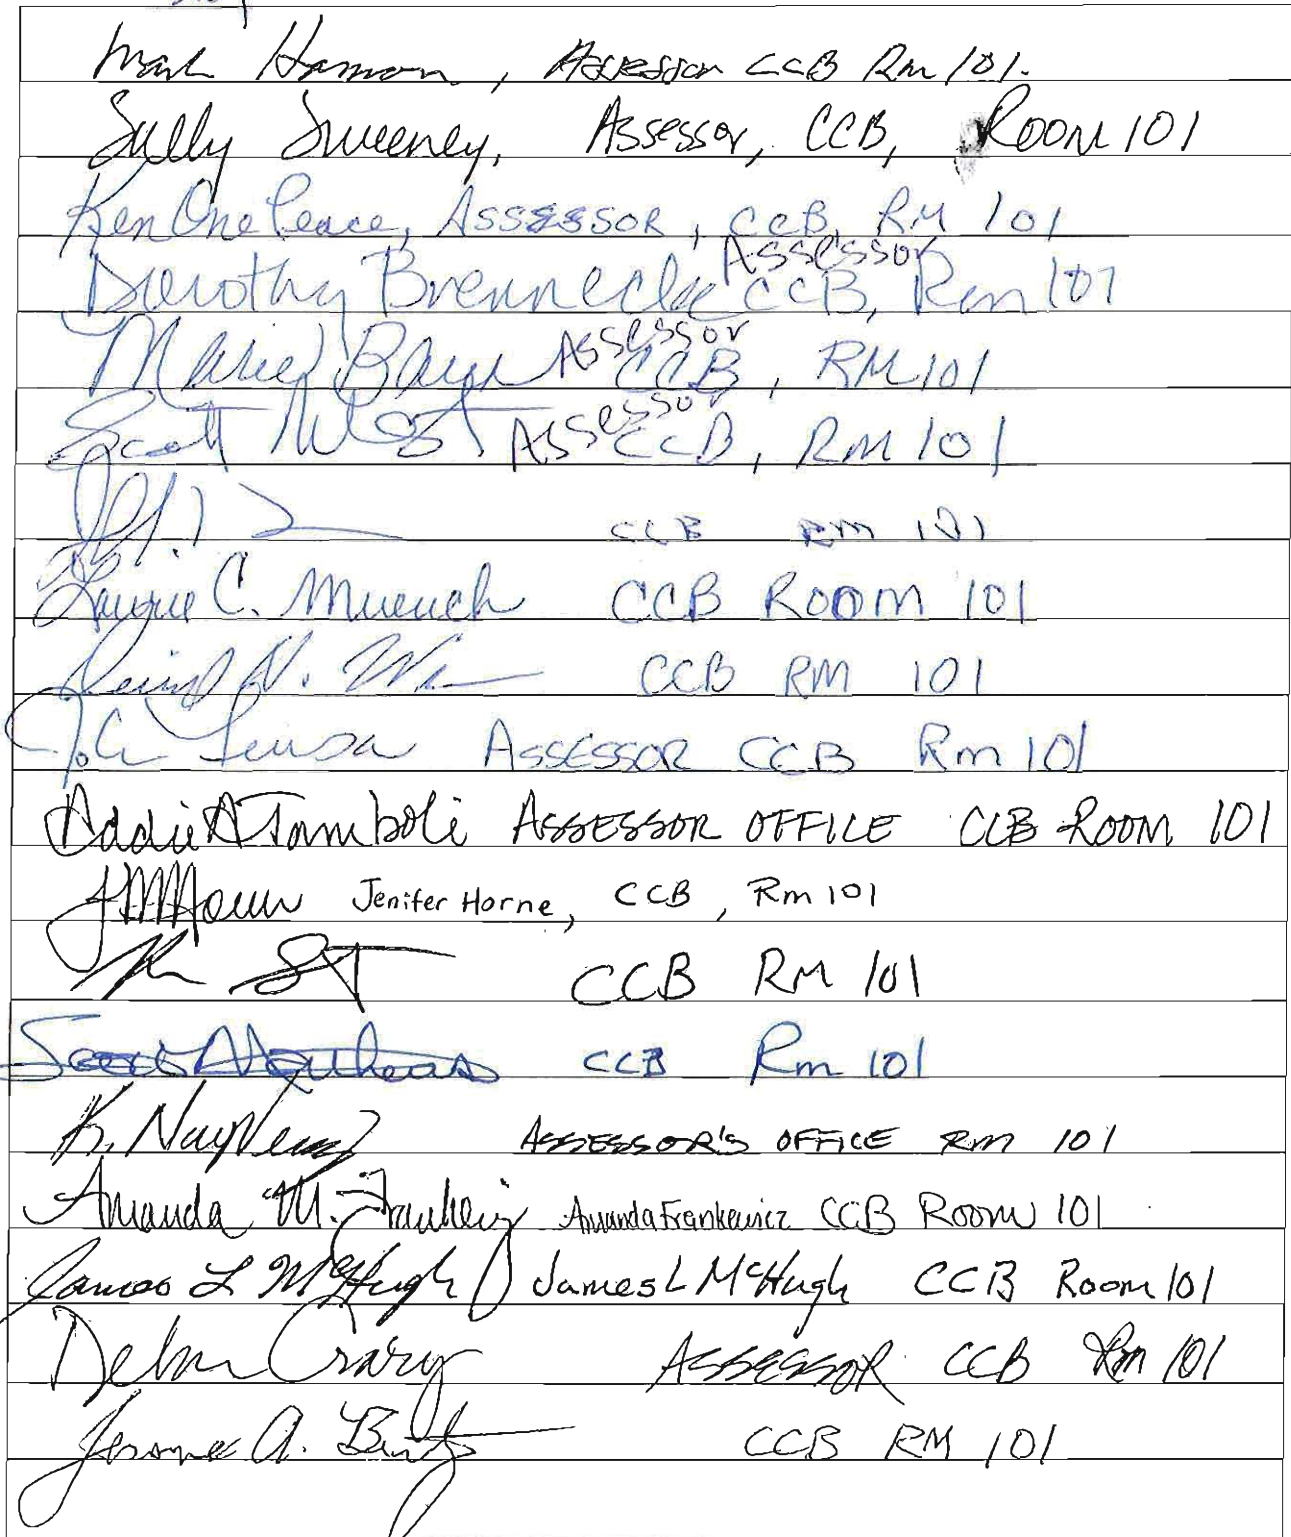 Mark Hamon, Assessor CCB Rm 101.
Sally Sweeney, Assessor, CCB, Room 101
Ken One Peace, ASSESSOR, CCB, RM 101
Dorothy Brennecke Assessor CCB, Rm 101
Marie Assessor CCB, RM 101
Scott West Assessor CCB, RM 101
CCB RM 101
Laurie C. Muench CCB ROOM 101
CCB RM 101
ASSESSOR CCB Rm 101
Addie A Tamboli ASSESSOR OFFICE CCB ROOM 101
Jenifer Horne, CCB, Rm 101
CCB RM 101
Scott CCB Rm 101
K. ASSESSOR'S OFFICE RM 101
Amanda M. Frankewicz Amanda Frankewicz CCB Room 101
James L McHugh James L McHugh CCB Room 101
Debra Crary ASSESSOR CCB Rm 101
Jerome A. CCB RM 101